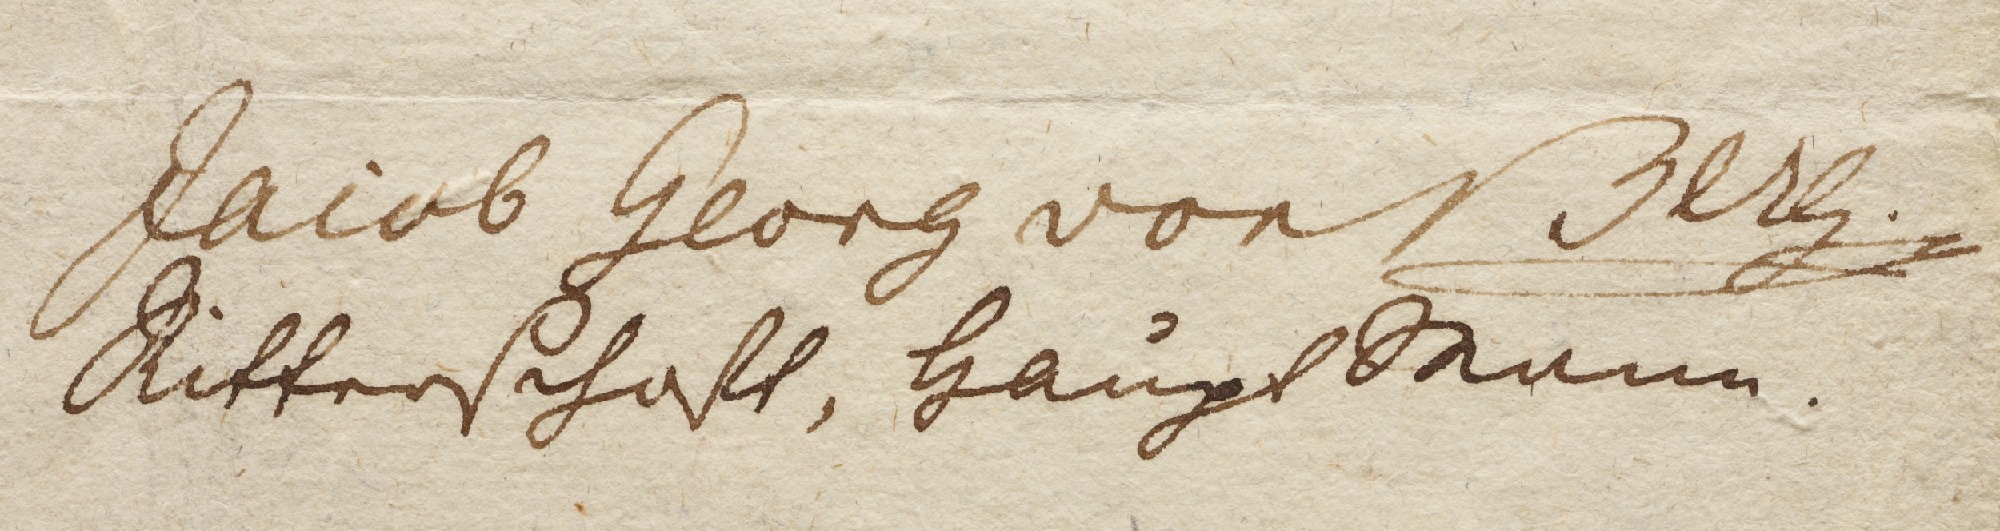 Jacob Georg von Berg.
Ritterschaft, Haupt Mann.